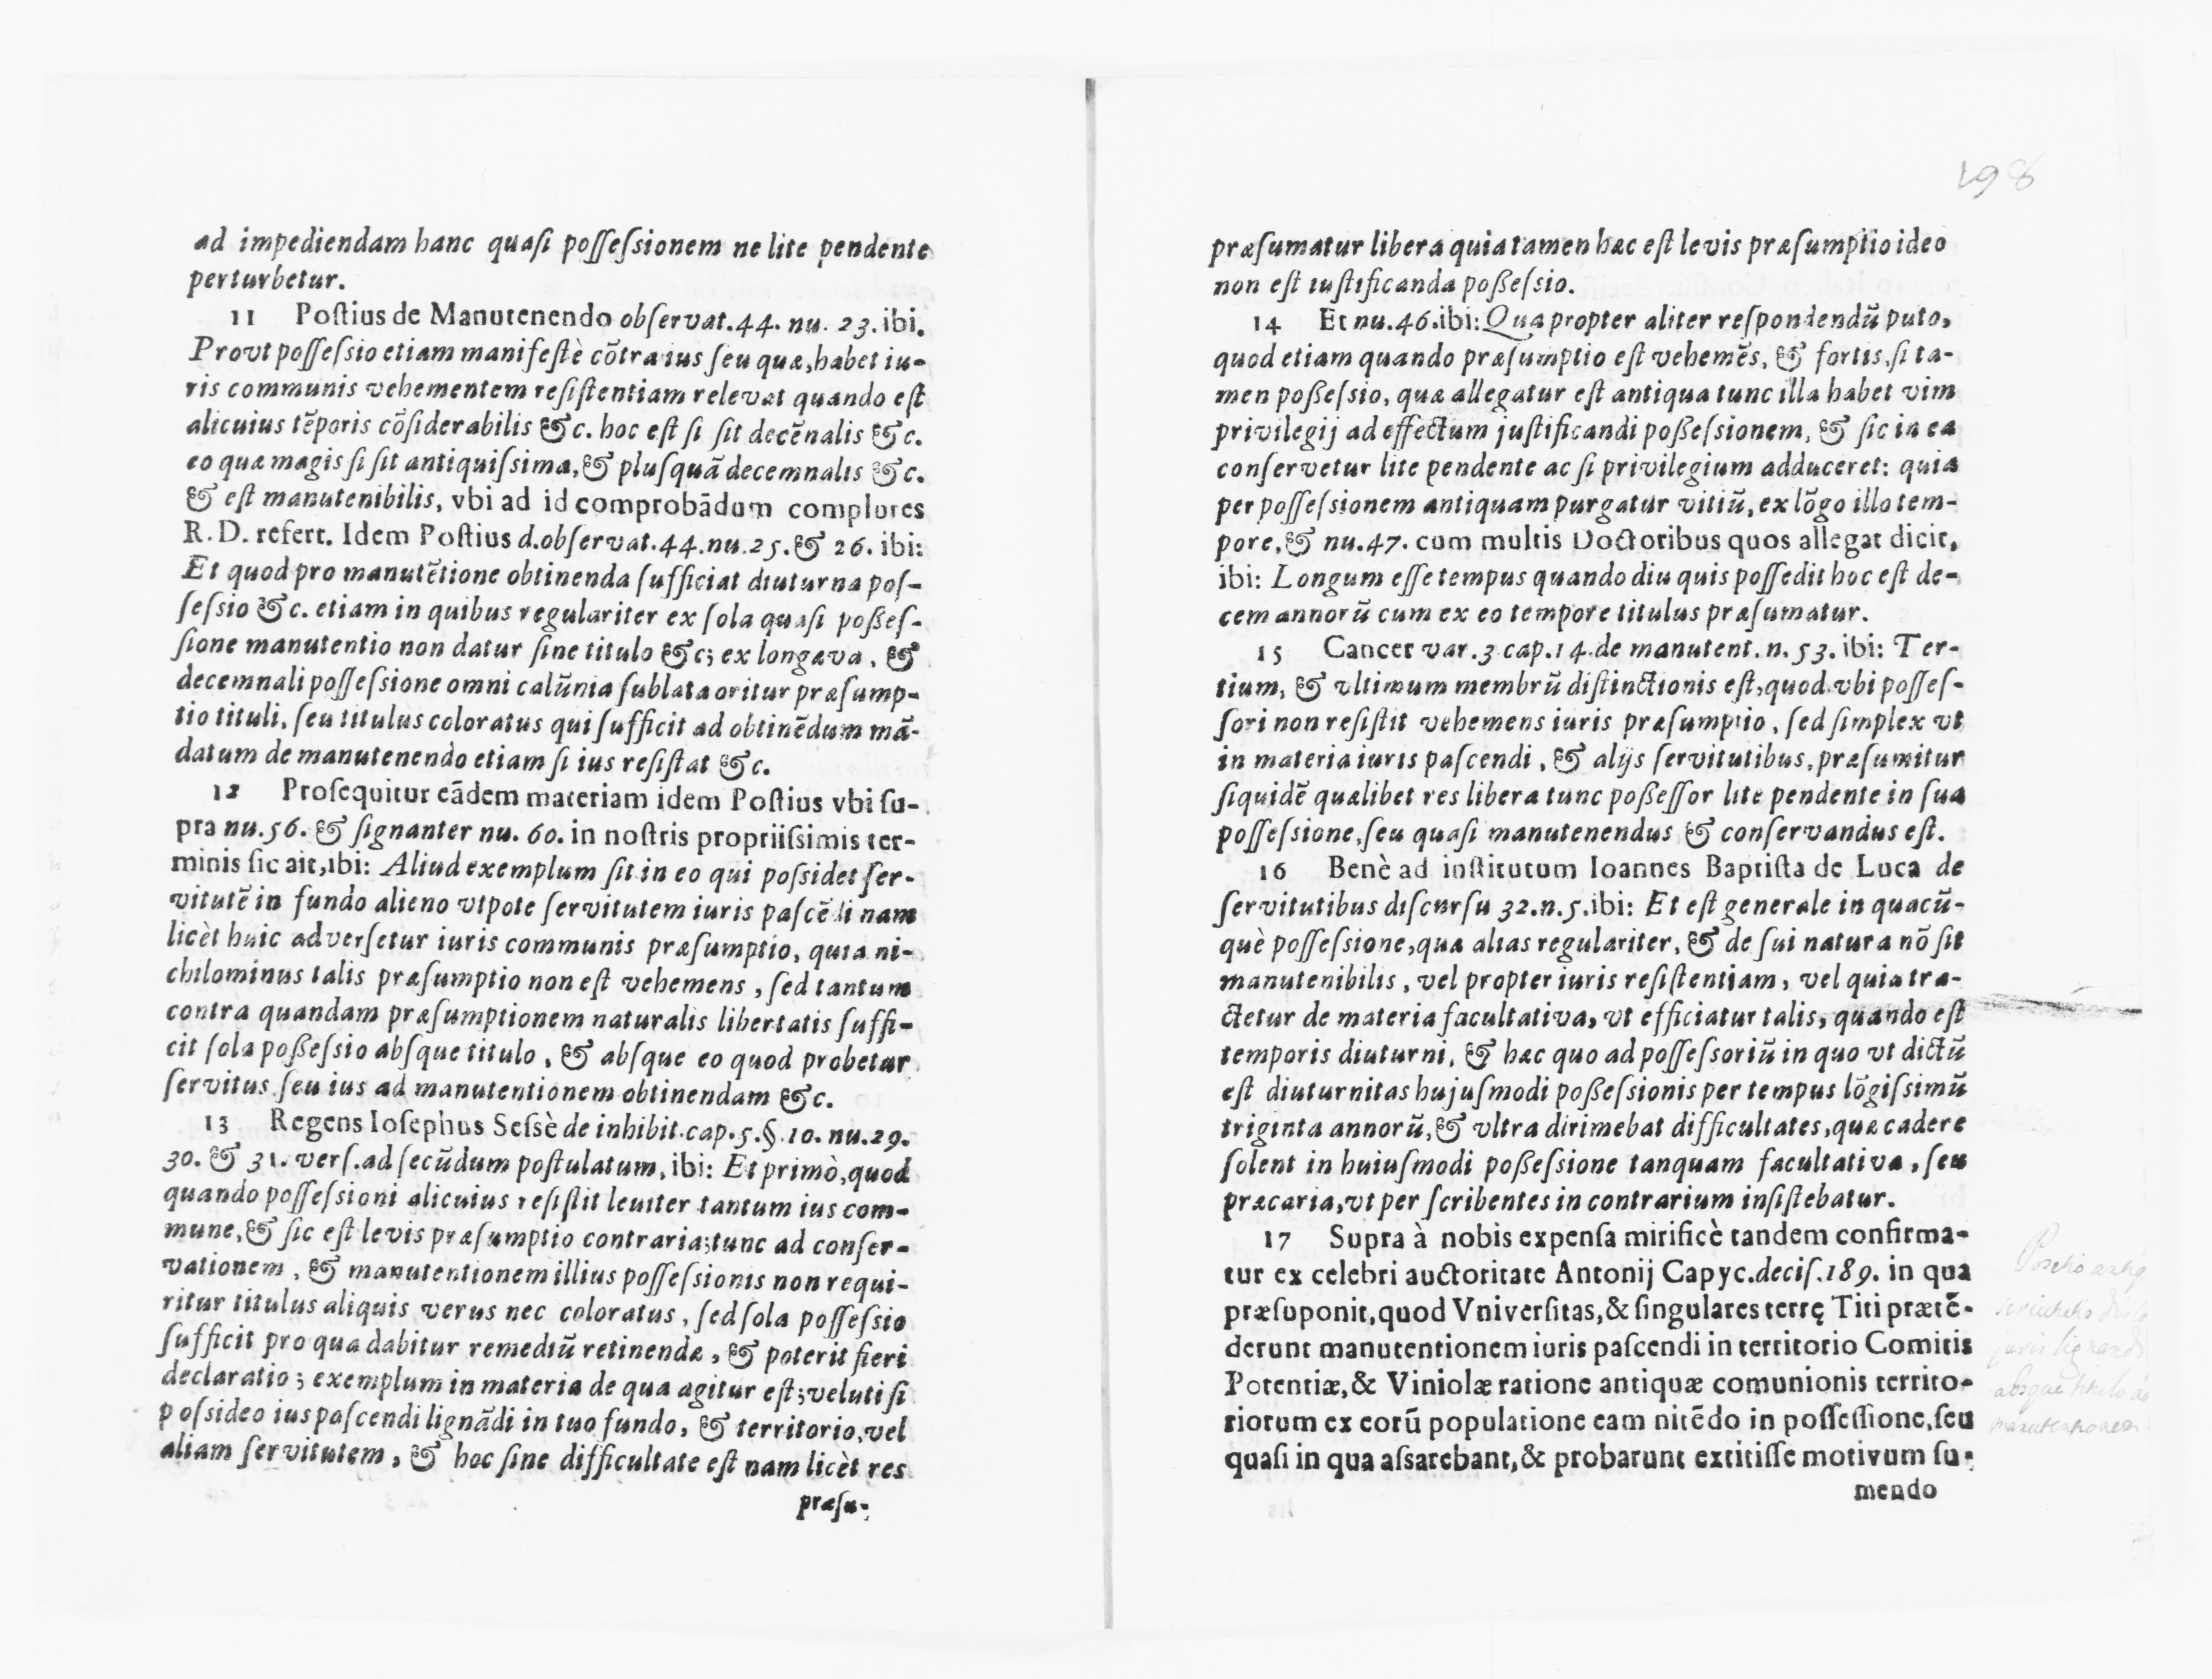 ad impediendam hanc quasi possessionem ne lite pendente
perturbetur.
11 Postius de Manutenendo observat.44. nu. 23. ibi.
Provt possessio etiam manifestè cõtra ius seu quæ, habet iu-
ris communis vehementem resistentiam relevat quando est
alicuius tẽporis cõsiderabilis &c. hoc est si sit decẽnalis &c.
eo quæ magis si sit antiquissima, & plusquã decemnalis &c.
& est manutenibilis, vbi ad id comprobãdum complures
R. D. refert. Idem Postius d.observat.44.nu.25.& 26. ibi:
Et quod pro manutẽtione obtinenda sufficiat diuturna pos-
sessio &c. etiam in quibus regulariter ex sola quasi posses-
sione manutentio non datur sine titulo &c; ex longæva, &
decemnali possessione omni calũnia sublata oritur præsump-
tio tituli, seu titulus coloratus qui sufficit ad obtinẽdum mã-
datum de manutenendo etiam si ius resistat &c.
12 Prosequitur eãdem materiam idem Postius vbi su-
pra nu.56. & signanter nu. 60. in nostris propriissimis ter-
minis sic ait, ibi: Aliud exemplum sit in eo qui possidet ser-
vitutẽ in fundo alieno vtpote servitutem iuris pascẽdi nam
licèt huic adversetur iuris communis præsumptio, quia ni-
chilominus talis præsumptio non est vehemens, sed tantum
contra quandam præsumptionem naturalis libertatis suffi-
cit sola possessio absque titulo, & absque eo quod probetur
servitus seu ius ad manutentionem obtinendam &c.
13 Regens Iosephus Sessè de inhibit.cap.5.§.10. nu.29.
30. & 31. vers.ad secũdum postulatum, ibi: Et primò, quod
quando possessioni alicuius resistit leuiter tantum ius com-
mune, & sic est levis præsumptio contraria; tunc ad conser-
vationem, & manutentionem illius possessionis non requi-
ritur titulus aliquis verus nec coloratus, sed sola possessio
sufficit pro qua dabitur remediũ retinendæ, & poterit fieri
declaratio; exemplum in materia de qua agitur est; veluti si
possideo ius pascendi lignãdi in tuo fundo, & territorio, vel
aliam servitutem, & hoc sine difficultate est nam licèt res
præsu-
198
præsumatur libera quia tamen hæc est levis præsumptio ideo
non est iustificanda possessio.
14 Et nu.46.ibi: Qua propter aliter respondendũ puto,
quod etiam quando præsumptio est vehemẽs, & fortis, si ta-
men possessio, quæ allegatur est antiqua tunc illa habet vim
privilegij ad effectum justificandi possessionem, & sic in ea
conservetur lite pendente ac si privilegium adduceret: quia
per possessionem antiquam purgatur vitiũ, ex lõgo illo tem-
pore, & nu.47. cum multis Doctoribus quos allegat dicit,
ibi: Longum esse tempus quando diu quis possedit hoc est de-
cem annorũ cum ex eo tempore titulus præsumatur.
15 Cancer var.3 cap.14.de manutent. n. 53. ibi: Ter-
tium, & vltimum membrũ distinctionis est, quod vbi posses-
sori non resistit vehemens iuris præsumptio, sed simplex vt
in materia iuris pascendi, & alijs servitutibus, præsumitur
siquidẽ quælibet res libera tunc possessor lite pendente in sua
possessione, seu quasi manutenendus & conservandus est.
16 Benè ad institutum Ioannes Baptista de Luca de
servitutibus discursu 32.n.5.ibi: Et est generale in quacũ-
què possessione, quæ alias regulariter, & de sui natura nõ sit
manutenibilis, vel propter iuris resistentiam, vel quia tra-
ctetur de materia facultativa, vt efficiatur talis, quando est
temporis diuturni, & hæc quo ad possessoriũ in quo vt dictũ
est diuturnitas hujusmodi possessionis per tempus lõgissimũ
triginta annorũ, & vltra dirimebat difficultates, quæ cadere
solent in huiusmodi possessione tanquam facultativa, seu
præcaria, vt per scribentes in contrarium insistebatur.
17 Supra à nobis expensa mirificè tandem confirma-
tur ex celebri auctoritate Antonij Capyc.decis.189. in qua
præsuponit, quod Vniversitas, & singulares terrę Titi prætẽ-
derunt manutentionem iuris pascendi in territorio Comitis
Potentiæ, & Viniolæ ratione antiquæ comunionis territo-
riorum ex eorũ populatione eam nitẽdo in possessione, seu
quasi in qua assarebant, & probarunt extitisse motivum su-
mendo